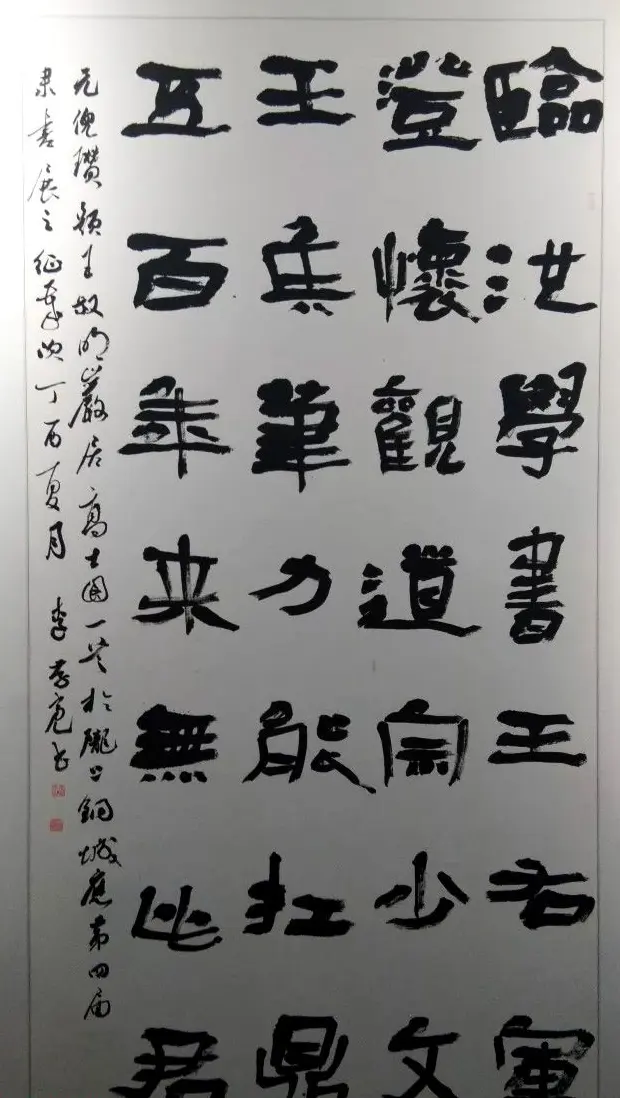 臨池學書王右軍
澄懷觀道宗少文
王侯筆力能扛鼎
五百年来無此君
元倪瓚題王叔明巖居高士圖一首於隴上銅城應第四届
隶書展之征歲次丁酉夏月 李亮书